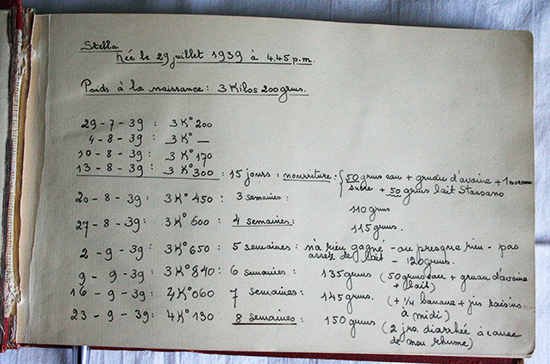 Stella
née le 29 juillet 1939 à 4.45 p.m.
Poids à la naissance: 3 Kilos 200 grms.
29-7-39: 3 K° 200
4-8-39: 3 K° —
10-8-39: 3 K° 170
13-8-39: 3 K° 300: 15 jours: nourriture: { 50 grms eau + gruau d'avoine + 1 morceau
sucre + 50 grms lait Stassano
20-8-39: 3 K° 450: 3 semaines: 110 grms
27-8-39: 3 K° 600: 4 semaines: 115 grms.
2-9-39: 3 K° 650: 5 semaines: n'a rien gagné - ou presque rien - pas
assez de lait - 120 grms.
9-9-39: 3 K° 840: 6 semaines: 135 grms (50 grms eau + gruau d'avoine
lait)
16-9-39: 4 K° 060 7 semaines: 145 grms. (+ 1/4 banane + jus raisins
à midi)
23-9-39: 4 K° 130 8 semaines: 150 grms (2 jrs. diarrhée à cause
de mon rhume)